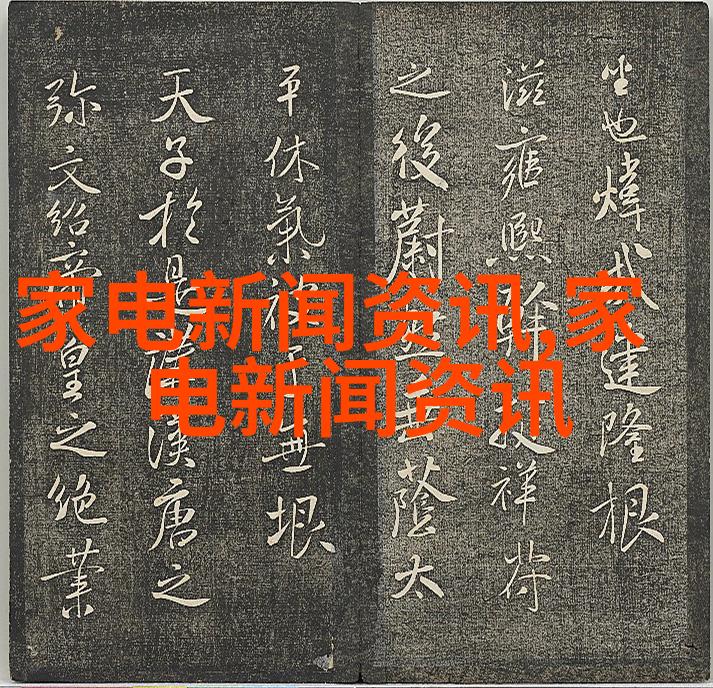 也煒哉建隆根
滋雍熙祥符
之後蔚蔭太
平休氣被無垠
天子於是薄漢唐之
弥文紹帝皇之絶業
家电新闻资讯,家
电新闻资讯